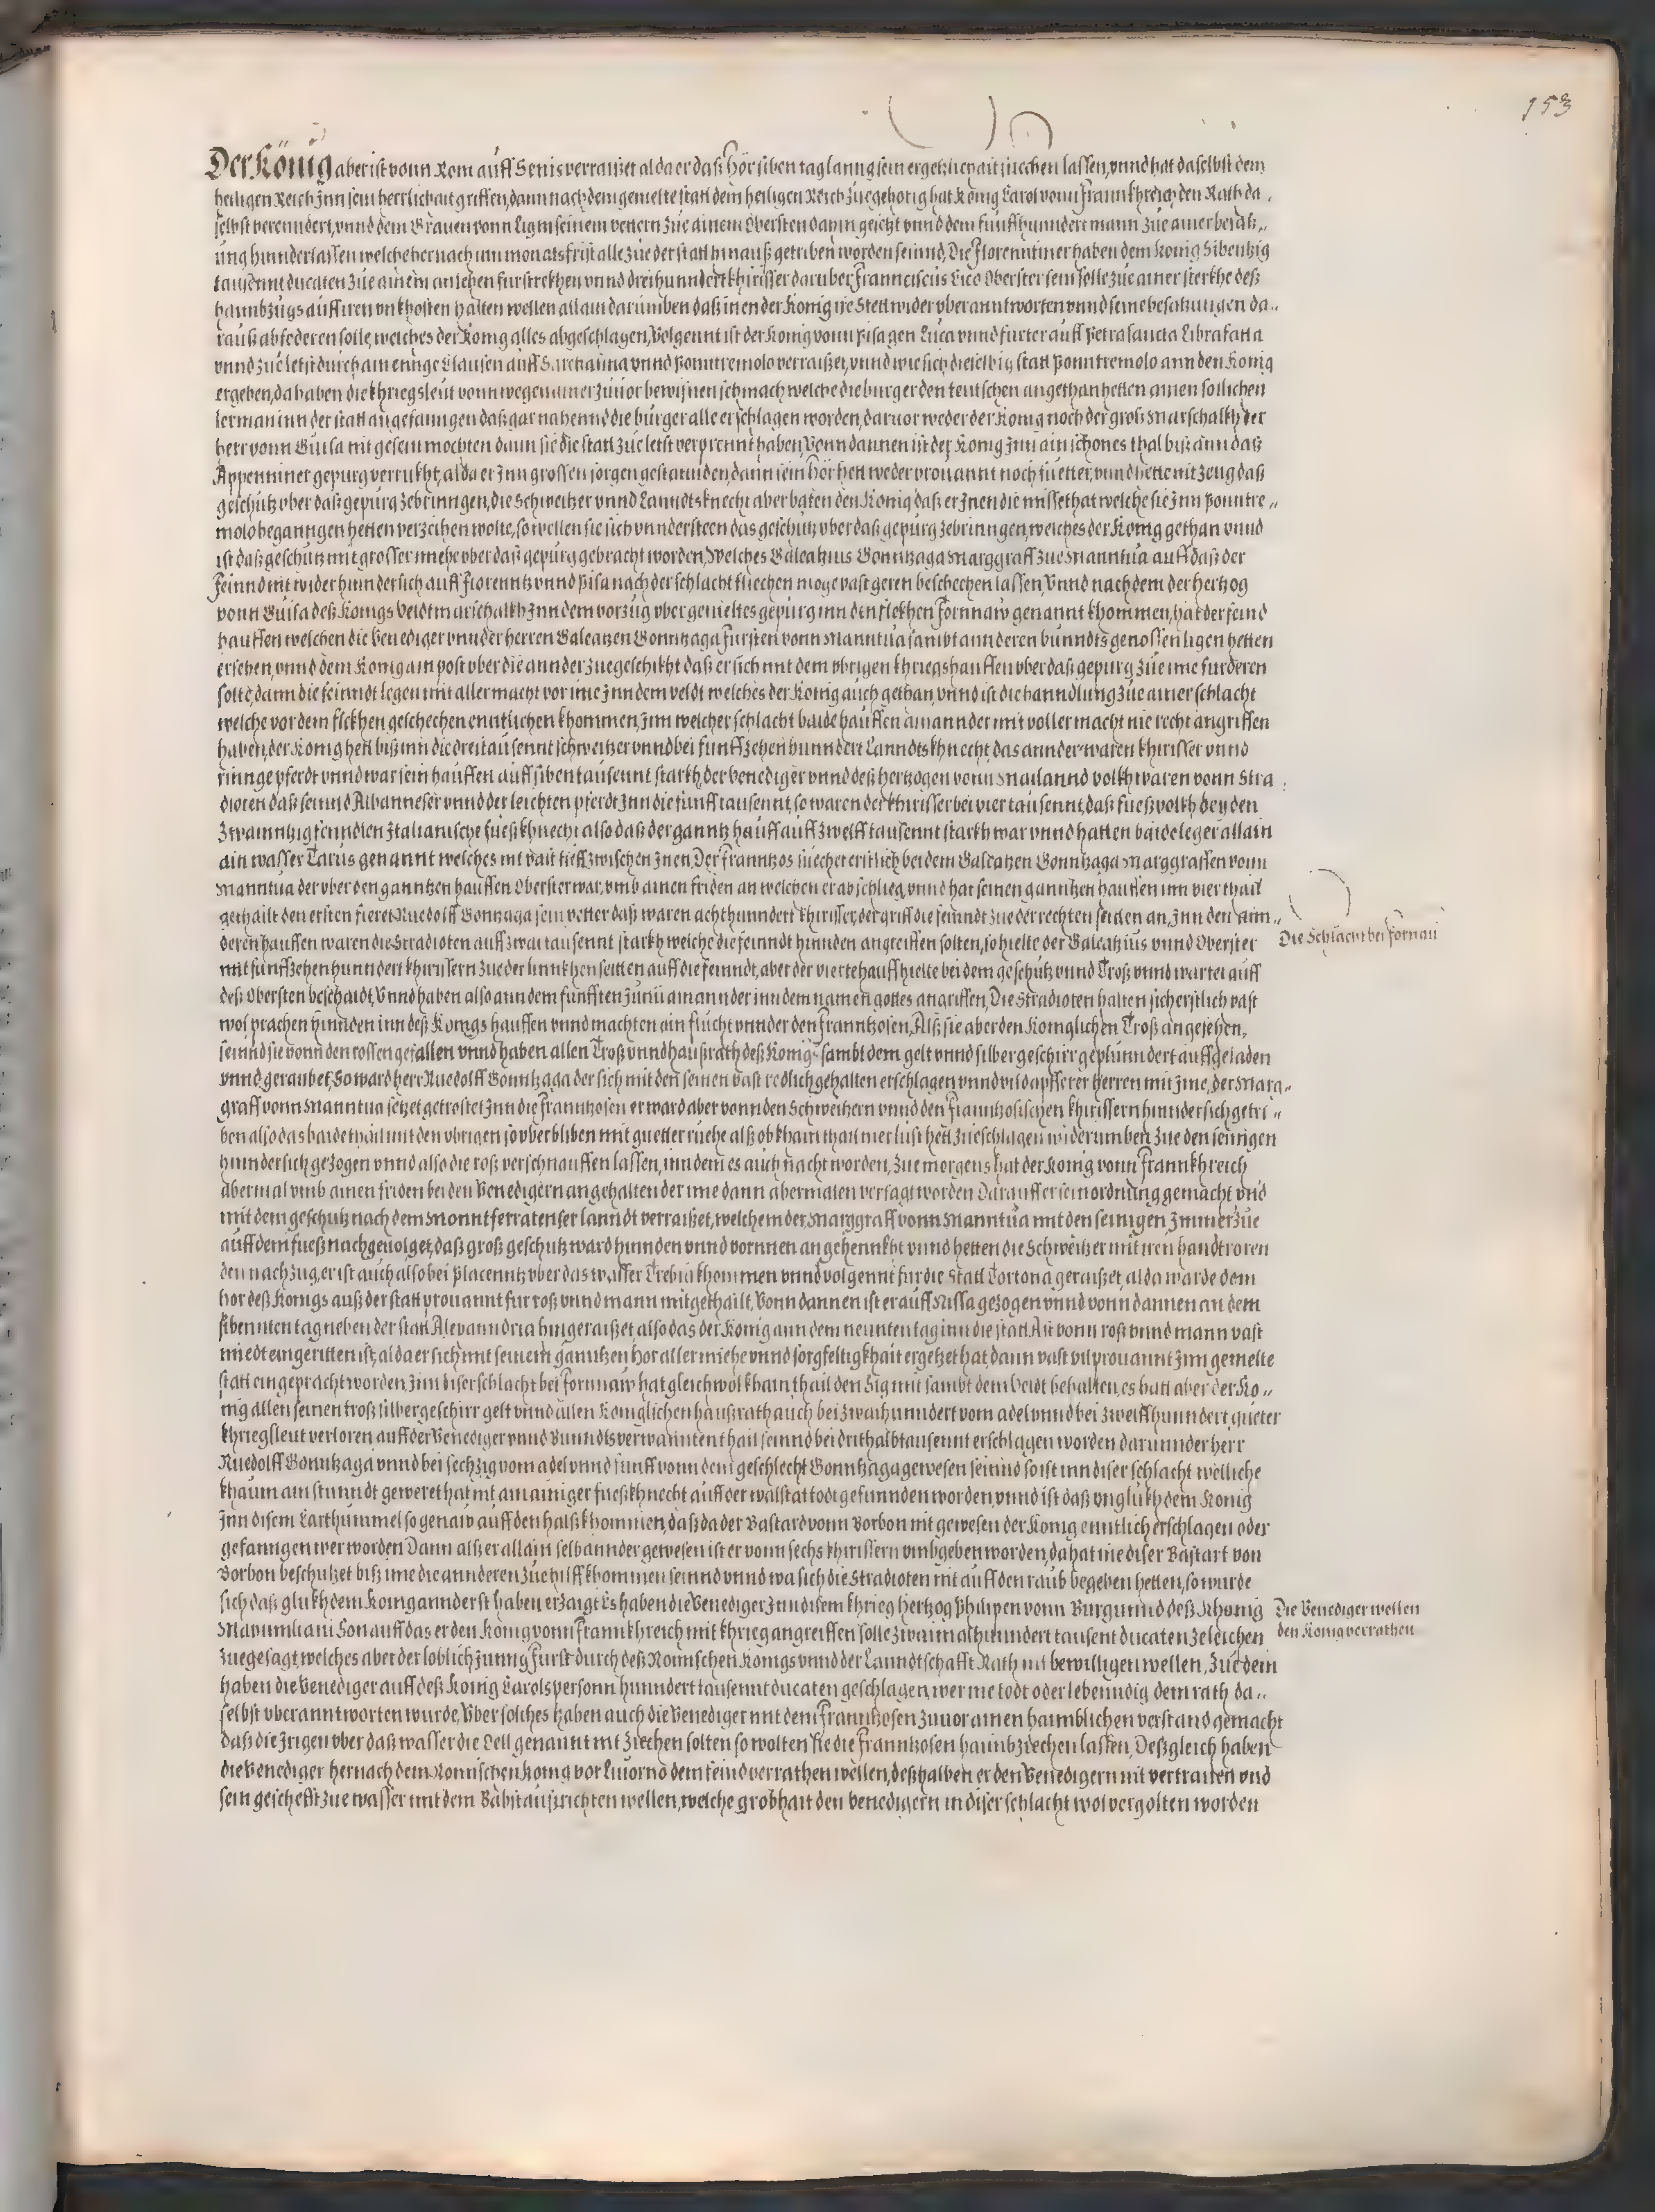 153
Der König aber ist vonn Rom auff Senis verraiset alda er daß Hör siben tag lanng sein ergetzlichait suechen lassen, vnnd hat daselbst dem
heiligen Reich Jnn sein herrlichait griffen, dann nach dem gemelte statt dem heiligen Reich Zuegehörig hat König Carol vonn Frannkhreich den Rath da
selbst verenndert, vnnd dem Grauen vonn Ligni seinem vettern Zue ainem Obersten darin gesetzt vnnd dem funffhunndert mann Zue ainer besatz„
ung hinnderlassen welche hernach inn monats frist alle Zue der statt hinauß getriben worden seinnd, Die Florenntiner haben dem König Sibentzig
tausennt ducaten Zue ainem anlehen furstrekhen vnnd dreihunndert khirisser daruber Franciscus Sico Oberster sein solle Zue ainer sterkhe deß
haimbzugs auff iren vnkhosten halten wellen allain darumben daß inen der König ire Stett wider vberanntworten vnnd seine besatzungen da„
rauß abfederen solle, welches der König alles abgeschlagen, Volgennt ist der König vonn Pisa gen Luca vnnd furter auff Petrasancta Librafatta
vnnd Zue letst durch ain ennge Clausen auff Sarchanna vnnd Ponntremolo verraiset, vnnd wie sich dieselbig statt Ponntremolo ann den König
ergeben, da haben die khriegsleut vonn wegen ainer Zuuor bewisnen schmach welche die burger den teutschen angethan hetten ainen sollichen
lerman inn der statt angefanngen daß gar nahennd die burger alle erschlagen worden, daruor weder der König noch der groß Marschalkh der
herr vonn Guisa mit gesein mochten dann sie die statt Zue letst verprennt haben, Vonn dannen ist der König Jnn ain schones thal biß ann daß
Appenniner gepurg verrukht, alda er Jnn grossen sorgen gestannden, dann sein Hör hett weder prouannt noch fuetter, vnnd hette nit Zeug daß
geschutz vber daß gepurg Zebrinngen, die Schweitzer vnnd Lanndtsknecht aber baten den König daß er Jnen die missethat welche sie Jnn Ponntre„
molo beganngen hetten verzeihen wolte, so wellen sie sich vnndersteen das geschutz vber daß gepurg Zebrinngen, welches der König gethan vnnd
ist daß geschutz mit grosser muehe vber daß gepurg gebracht worden, Welches Galeatzius Gonntzaga Marggraff Zue Manntua auff daß der
Feinnd nit wider hinndersich auff Florenntz vnnd Pisa nach der schlacht fliechen moge vast geren beschechen lassen, Vnnd nach dem der hertzog
vonn Guisa deß Königs Veldtmarschalkh Jnn dem vorzug vber gemeltes gepurg inn den flekhen Fornnaw genannt khommen, hat der feind
hauffen welchen die Venediger vnnder herren Galeatzen Gonntzaga Fursten vonn Manntua sambt annderen bunndts genossen ligen hetten
ersehen, vnnd dem König ain post vber die annder Zuegeschikht daß er sich mit dem vbrigen khriegshauffen vber daß gepurg Zue ime furderen
solte, dann die feinndt legen mit aller macht vor ime Jnn dem veldt welches der König auch gethan, vnnd ist die hanndlung Zue ainer schlacht
welche vor dem flekhen geschechen enntlichen khommen, Jnn welcher schlacht baide hauffen ainannder mit voller macht nie recht angriffen
haben, der König hett biß inn die dreitausennt schweitzer vnnd bei funffzehen hunndert Lanndtskhnecht, das annder waren khirisser vnnd
rinnge pferdt vnnd war sein hauffen auff siben tausennt starkh, der Venediger vnnd deß hertzogen vonn Mailannd volkh waren vonn Stra
dioten daß seinnd Albanneser vnnd der leichten pferdt Jnn die funff tausennt, so waren der khirisser bei vier tausennt, daß fueßvolkh bey den
Zwainntzig fenndlen Jtalianische fueßkhnecht also daß der ganntz hauff auff Zwelff tausennt starkh war vnnd hatten baide leger allain
ain wasser Tarus genannt welches nit vast tieff Zwischen Jnen, Der Franntzos suechet erstlich bei dem Galeatzen Gonntzaga Marggraffen vonn
Manntua der vber den ganntzen hauffen Oberster war, vmb ainen friden an welchen er abschlieg vnnd hat seinen ganntzen hauffen inn vier thail
gethailt den ersten fieret Ruedolff Gonntzaga sein vetter daß waren achthunndert khirisser, der griff die feinndt Zue der rechten seitten an, Jnn den ann„
deren hauffen waren die Stradioten auff Zwai tausennt starkh welche die feinndt hinnden angreiffen solten, so hielte der Galeatzius vnnd Oberster
Die Schlacht bei Fornau
mit funffzehen hunndert khirissern Zue der linnkhen seitten auff die feinndt, aber der vierte hauff hielte bei dem geschutz vnnd Troß vnnd wartet auff
deß Obersten beschaidt, Vnnd haben also ann dem funfften Junii ainannder inn dem namen gottes angriffen, Die Stradioten halten sich erstlich vast
wol prachen hinnden inn deß Königs hauffen vnnd machten ain flucht vnnder den Franntzosen, Alß sie aber den Koniglichen Troß angesehen,
seinnd sie vonn den rossen gefallen vnnd haben allen Troß vnnd haußrath deß Königs sambt dem gelt vnnd silbergeschirr geplunndert auffgeladen
vnnd geraubet, So ward herr Ruedolff Gonntzaga der sich mit den seinen vast redlich gehalten erschlagen vnnd vil dapfferer Herren mit Jme, der Marg„
graff vonn Manntua setzet getrostet Jnn die Franntzosen er ward aber vonn den Schweitzern vnnd den Franntzosischen khirissern hinndersich getri„
ben also das baide thail mit den vbrigen so vberbliben mit guetter ruehe alß ob khain thail mer lust hett Zueschlagen widerumben Zue den seinigen
hinndersich gezogen vnnd also die roß verschnauffen lassen, inn dem es auch nacht worden, Zue morgens hat der König vonn Frannkhreich
abermal vmb ainen friden bei den Venedigern angehalten der ime dann abermalen versagt worden Darauff er sein ordnung gemacht vnd
mit dem geschutz nach dem Monntferratenser lanndt verraiset, welchem der Marggraff vonn Manntua mit den seinigen Jmmerzue
auff dem fueß nachgeuolget, daß groß geschutz ward hinnden vnnd vornnen angehennkht vnnd hetten die Schweitzer mit iren handtroren
den nachzug, er ist auch also bei Placenntz vber das wasser Trebia khommen vnnd volgennt fur die Statt Tortona geraiset, alda warde dem
hor deß Königs auß der statt prouannt fur roß vnnd mann mitgethailt, Vonn dannen ist er auff Nissa gezogen vnnd vonn dannen an dem
sibennten tag neben der statt Alexanndria hingeraiset also das der König ann dem neunten tag inn die statt Ast vonn roß vnnd mann vast
miedt eingeritten ist, alda er sich mit seinem ganntzen hor aller miehe vnnd sorgfeltigkhait ergetzet hat, dann vast vil prouannt Jnn gemelte
statt eingepracht worden, Jnn diser schlacht bei Fornnaw hat gleichwol khain thail den Sig mit sambt dem Veldt behalten, es hatt aber der Ko„
nig allen seinen troß silbergeschirr gelt vnnd allen Koniglichen haußrath auch bei Zwaihunndert vom adel vnnd bei Zwelffhunndert gueter
khriegsleut verloren auff der Venediger vnnd Bunndtsverwannten thail seinnd bei drithalbtausennt erschlagen worden darunnder herr
Ruedolff Gonntzaga vnnd bei sechzig vom adel vnnd funff vonn dem geschlecht Gonntzaga gewesen seinnd so ist inn diser schlacht welliche
khaum ain stunndt geweret hat nit ain ainiger fueßkhnecht auff der walstat todt gefunnden worden, vnnd ist daß vnglukh dem König
Jnn disem Carthummel so genaw auff den halß khommen, daß da der Bastard vonn Borbon nit gewesen der König enntlich erschlagen oder
gefanngen wer worden Dann alß er allain selb annder gewesen ist er vonn sechs khirissern vmbgeben worden, da hat ine diser Bastart von
Borbon beschutzet biß ime die annderen Zue hilff khommen seinnd vnnd wa sich die Stradioten nit auff den raub begeben hetten, so wurde
sich daß glukh dem König annderst haben erzaigt Es haben die Venediger Jnn disem khrieg hertzog Philipen vonn Burgunnd deß Khonig
Die Venediger wellen
den König verrathen
Maximiliani Son auff das er den König vonn Frannkhreich mit khrieg angreiffen solle Zwaimalhunndert tausent ducaten Zeleichen
Zuegesagt, welches aber der loblich Junng Furst durch deß Romischen Konigs vnnd der Lanndtschafft Rath nit bewilligen wellen, Zue dem
haben die Venediger auff deß König Carols personn hunndert tausennt ducaten geschlagen, wer ine todt oder lebenndig dem rath da„
selbst vberanntworten wurde, Vber solches haben auch die Venediger mit dem Franntzosen Zuuor ainen haimblichen verstand gemacht
daß die Jrigen vber daß wasser die Oell genannt nit Ziechen solten so wolten sie die Franntzosen haimbziechen lassen, Deßgleich haben
die Venediger hernach dem Romischen König vor Liuorno dem feind verrathen wellen, deßhalben er den Venedigern nit vertrauen vnd
sein geschefft Zue wasser mit dem Babst außrichten wellen, welche grobhait den Venedigern in diser schlacht wol vergolten worden